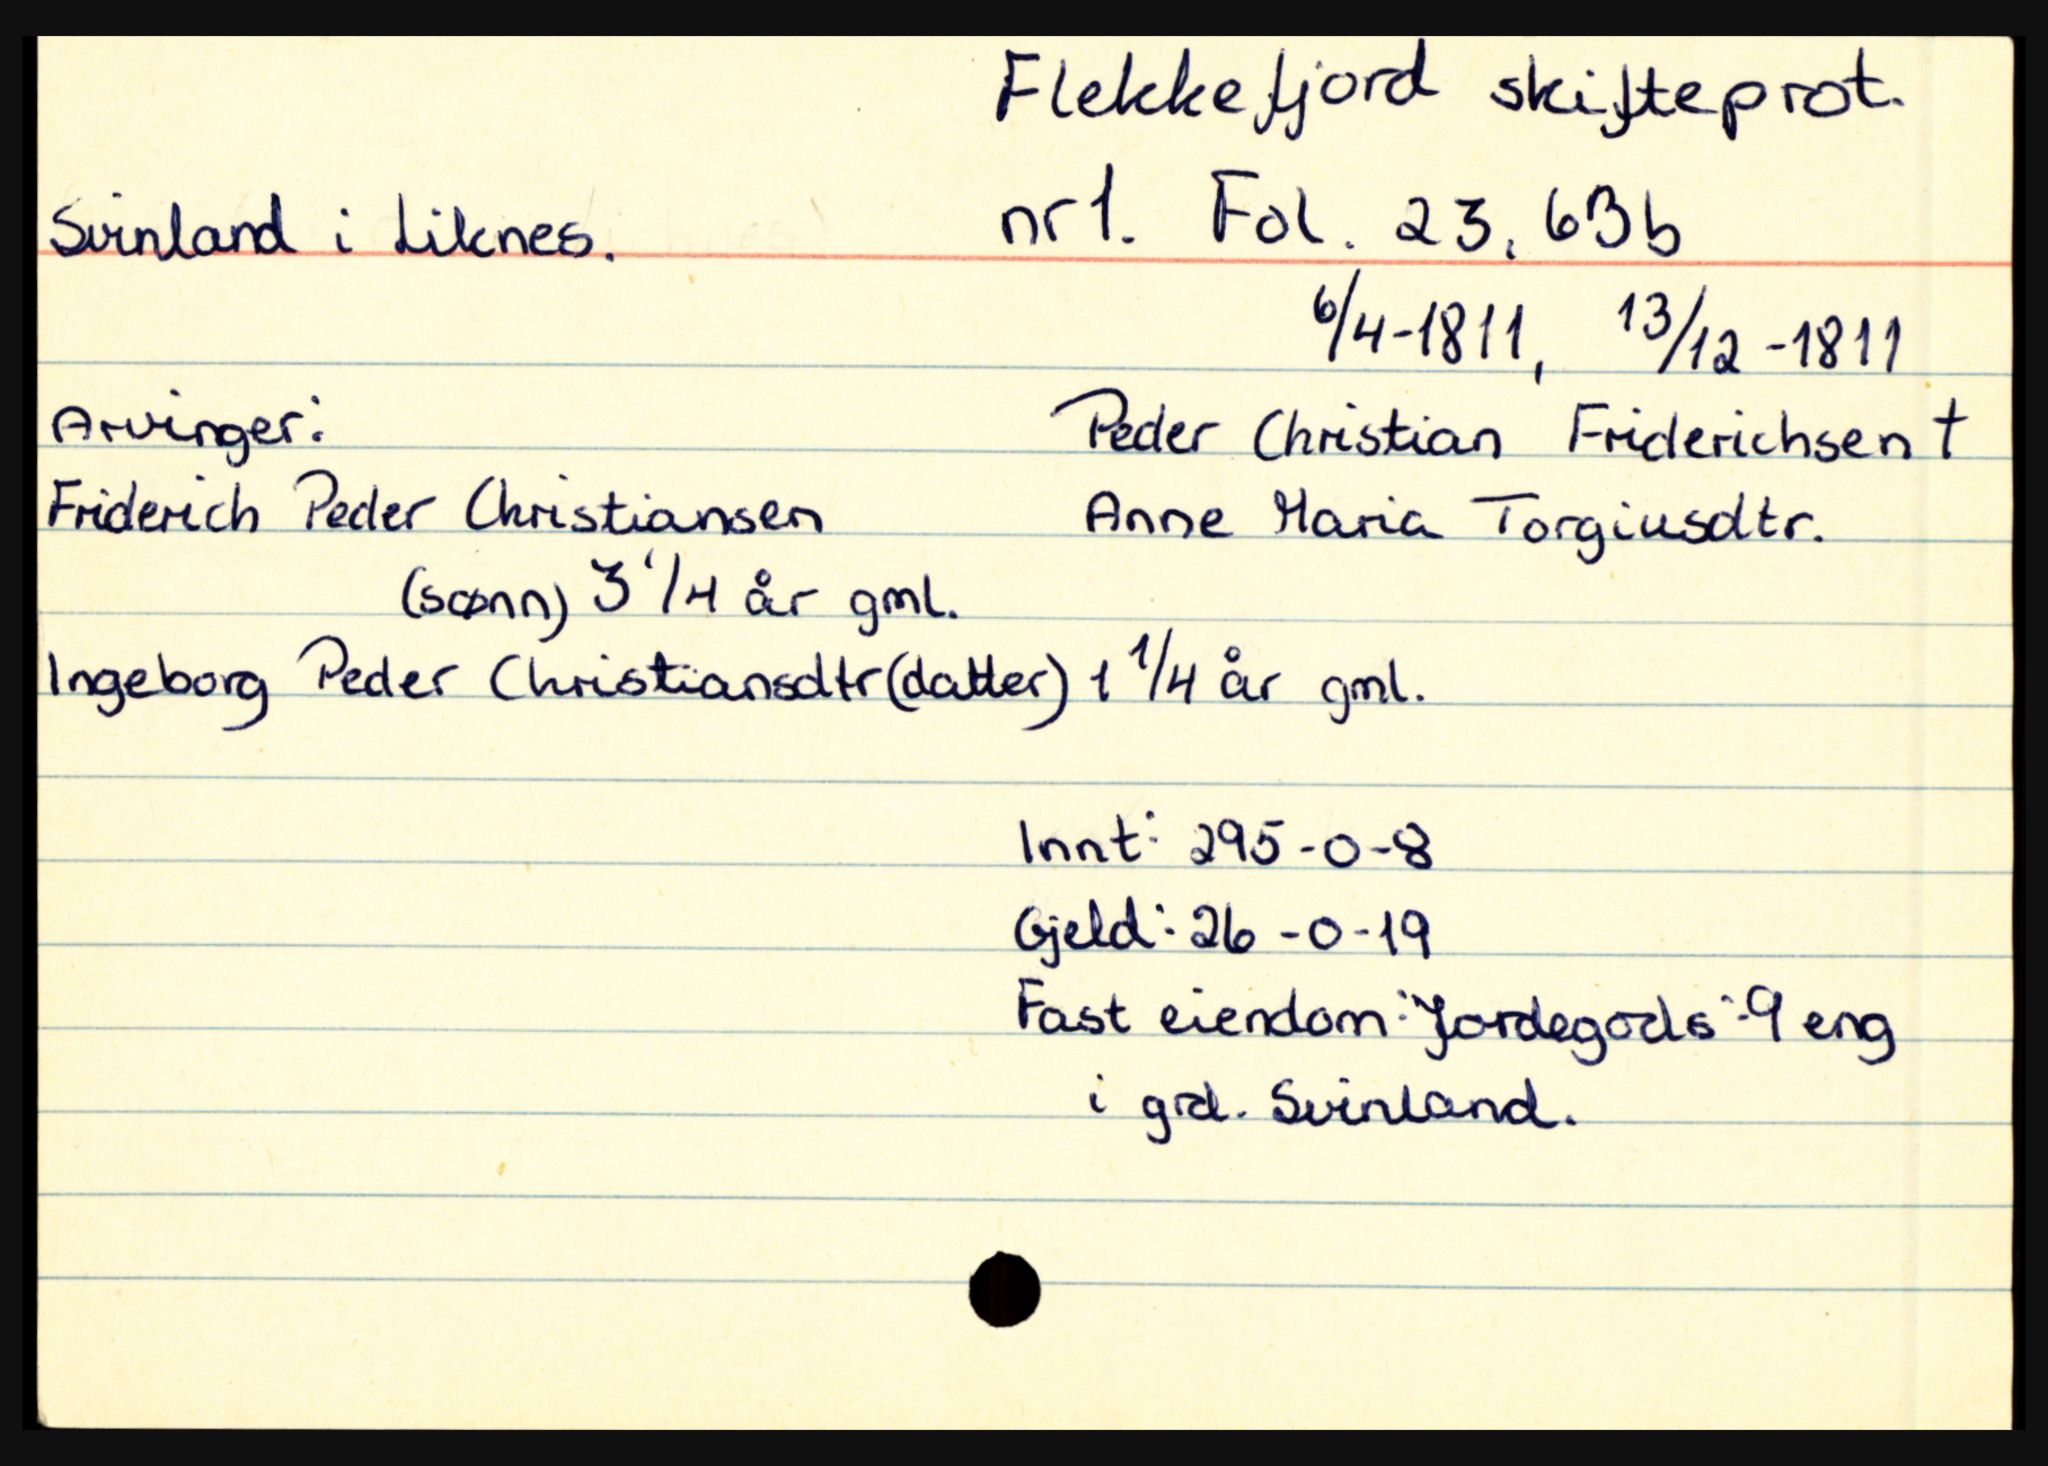 Flekkefjord skifteprot.
Svinland i Liknes. nr 1. Fol. 23, 63b
6/4-1811, 13/12-1811
Arvinger: Peder Christian Friderichsen †
Friderich Peder Christiansen Anne Maria Torgiusdtr.
(sønn) 3 1/4 år gml.
Ingeborg Peder Christiansdtr (datter) 1 1/4 år gml.
Innt: 295-0-8
Gjeld: 26-0-19
Fast eiendom: Jordegods: 9 eng
i grd. Svinland.